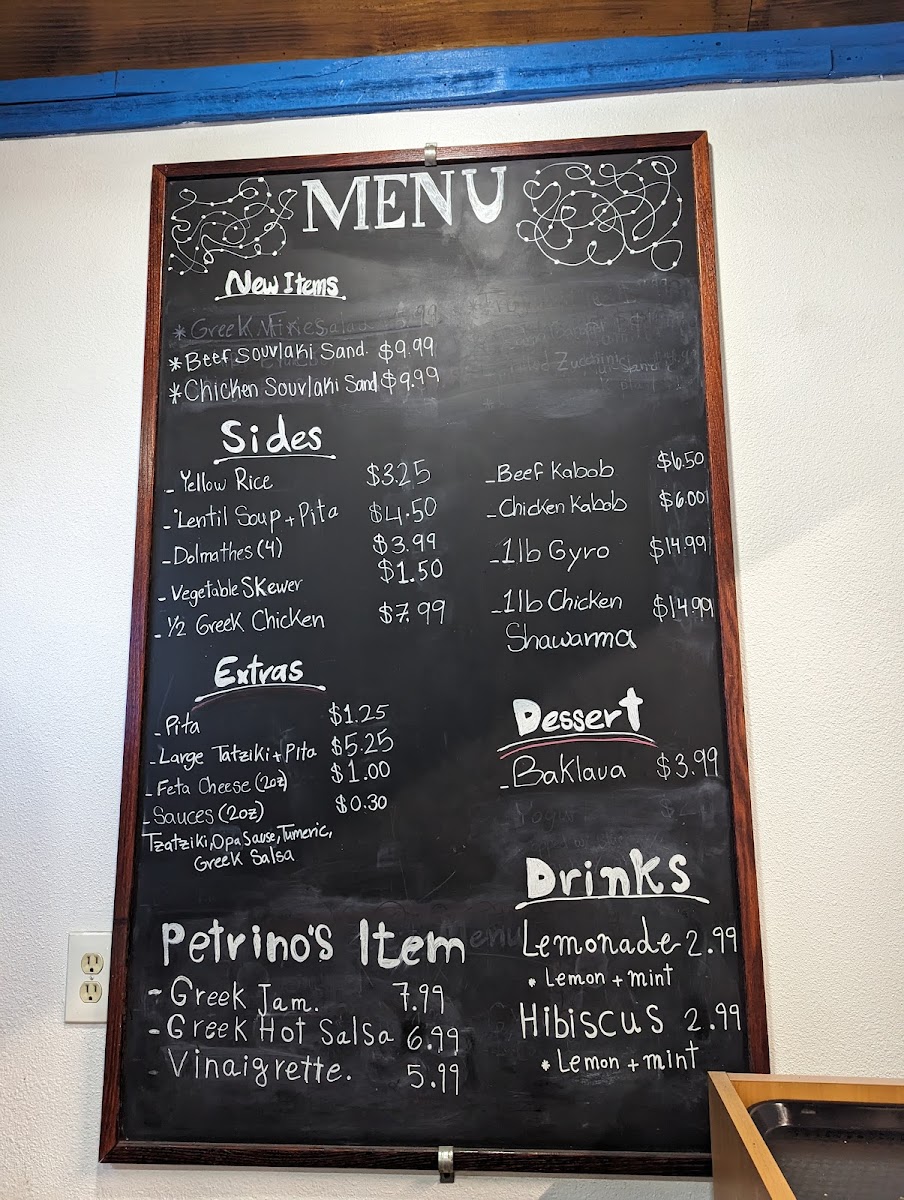 MENU
New Items
* Beef Souvlaki Sand. $9.99
* Chicken Souvlaki Sand $9.99
Sides
- Yellow Rice $3.25
- Lentil Soup + Pita $4.50
- Dolmathes (4) $3.99
- Vegetable Skewer $1.50
- 1/2 Greek Chicken $7.99
- Beef Kabob $6.50
- Chicken Kabob $6.00
- 1lb Gyro $14.99
- 1lb Chicken $14.99
Shawarma
Extras
- Pita $1.25
- Large Tatziki + Pita $5.25
- Feta Cheese (2oz) $1.00
- Sauces (2oz) $0.30
Tzatziki, Opa Sause, Tumeric,
Greek Salsa
Dessert
- Baklava $3.99
Petrino's Item
- Greek Jam. 7.99
- Greek Hot Salsa 6.99
- Vinaigrette. 5.99
Drinks
Lemonade 2.99
* Lemon + mint
Hibiscus 2.99
* Lemon + mint